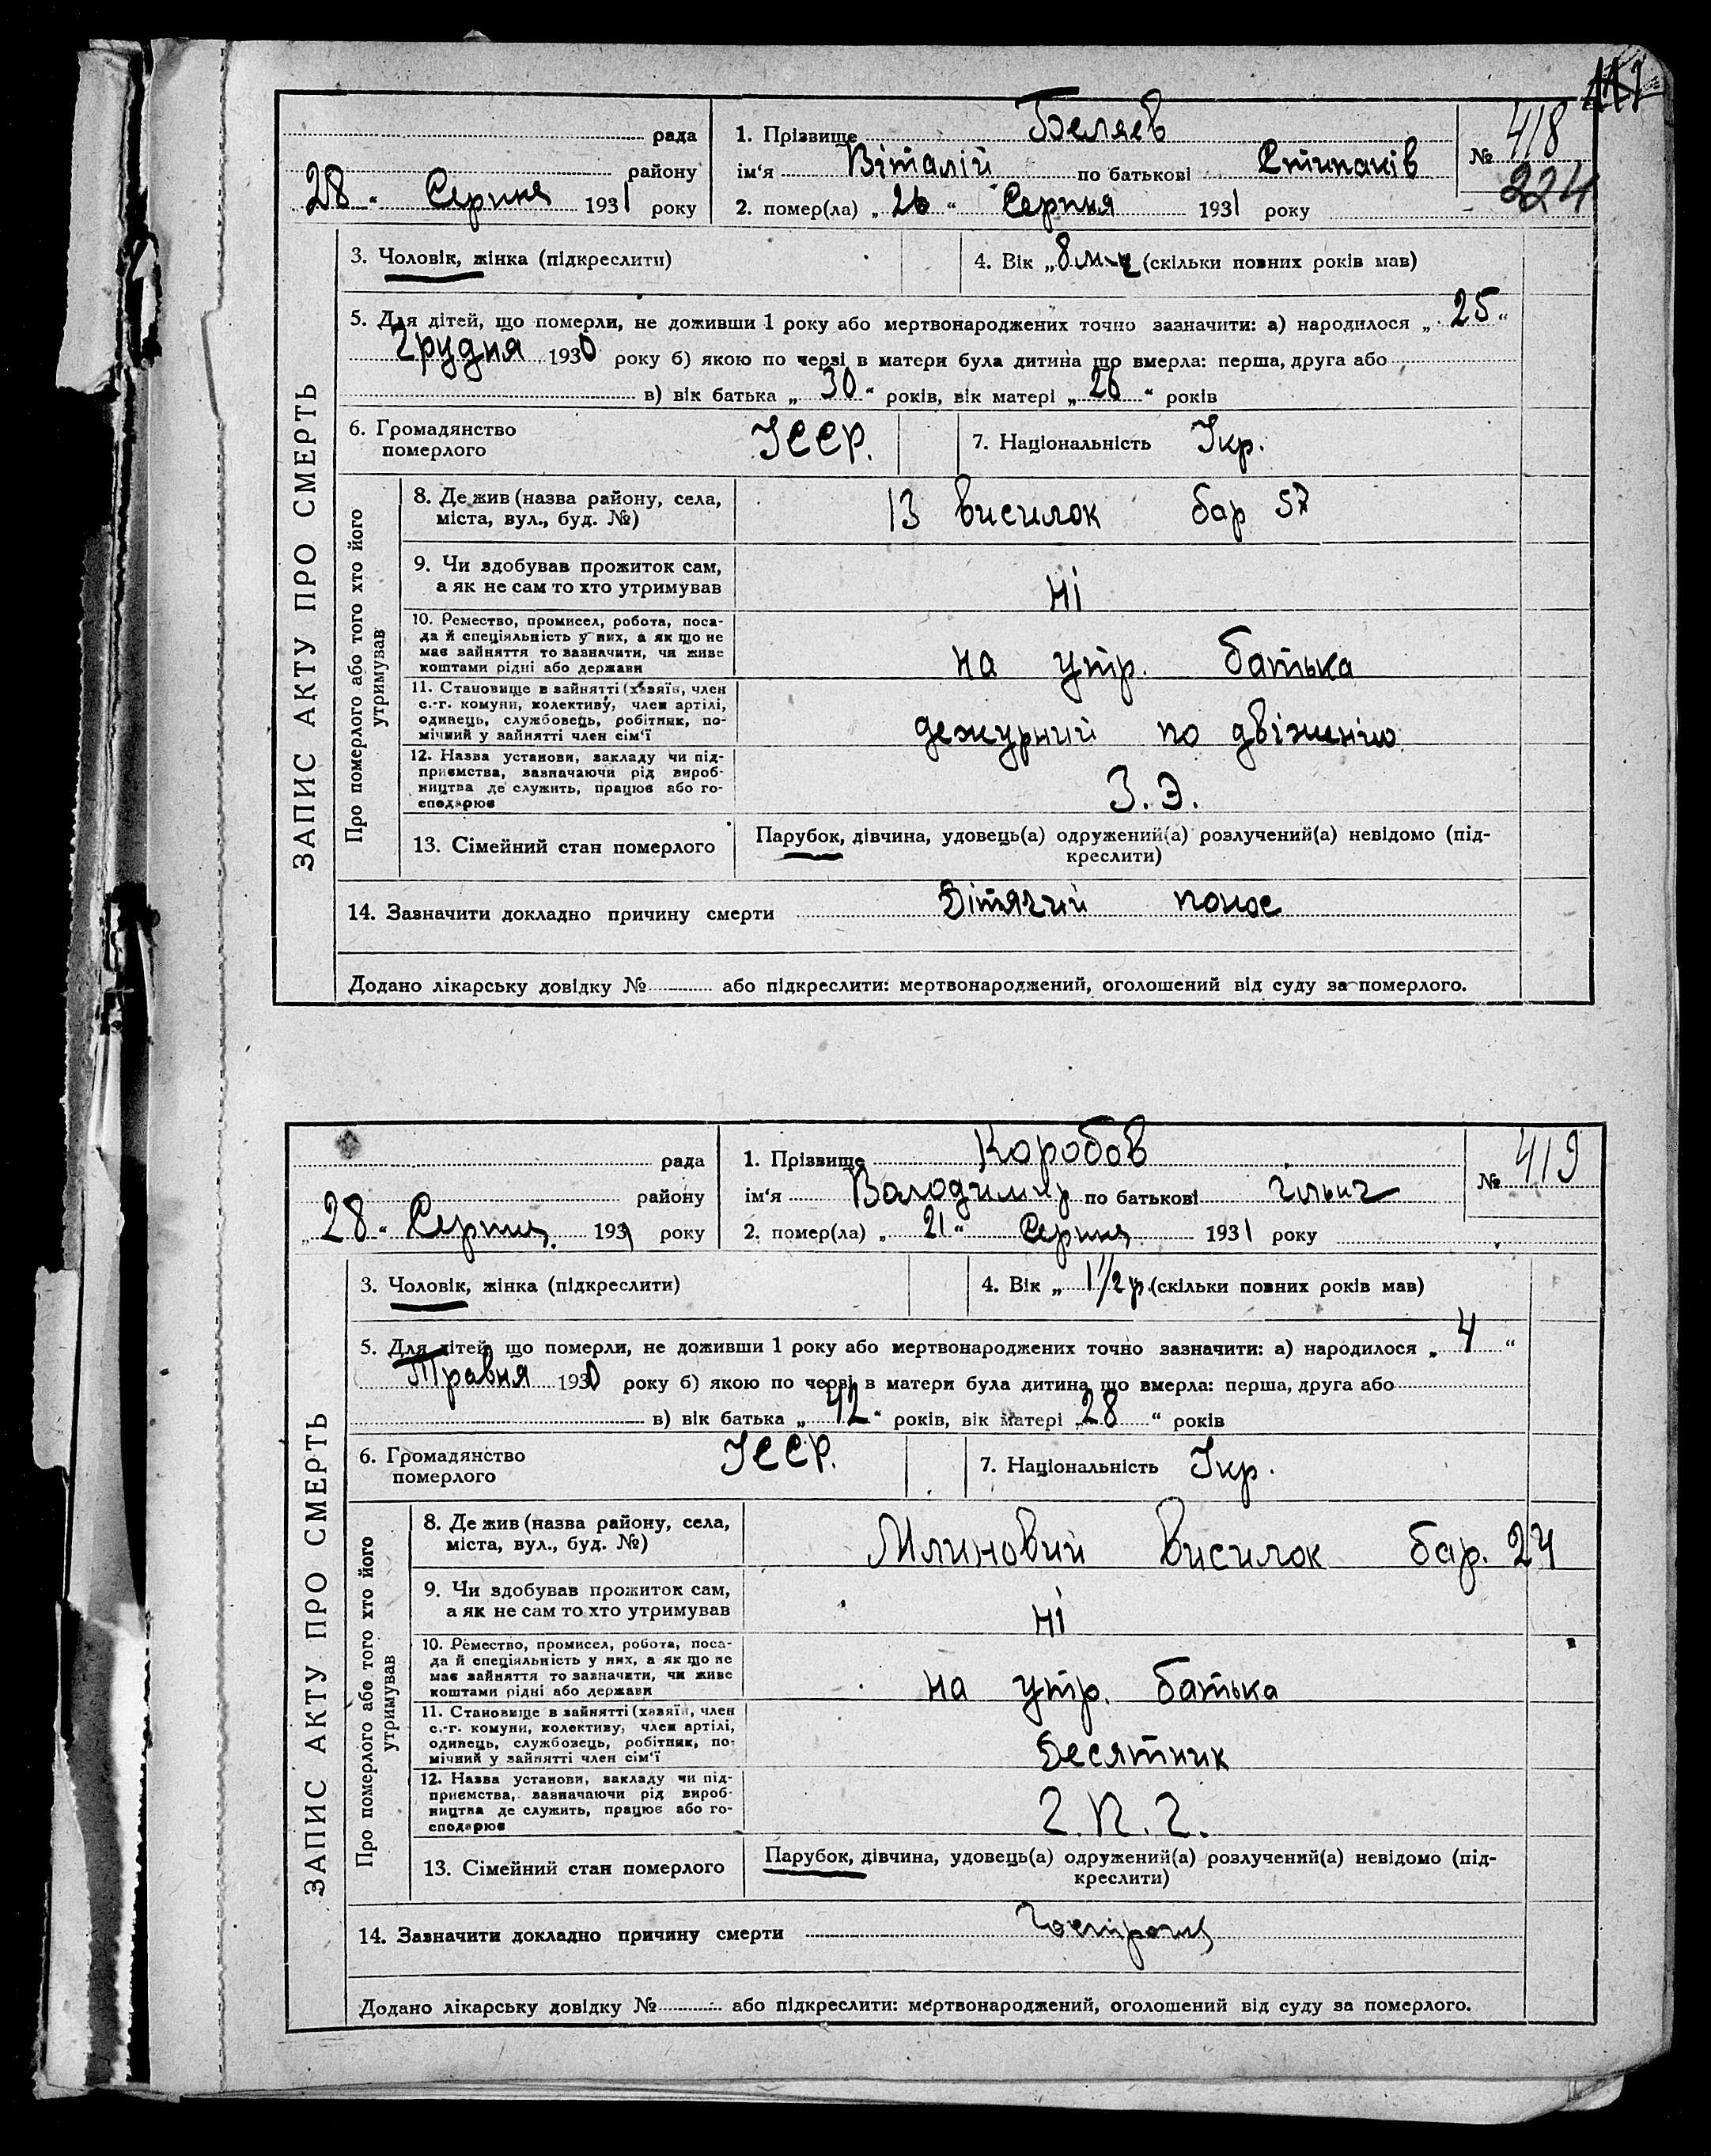 рада
району
28 " Серпня 1931 року
1. Прізвище Беляев
ім'я Віталій по батькові Степанів
2. помер(ла) „ 26 " Серпня 1931 року
№ 418
224
3. Чоловік, жінка (підкреслити)
4. Вік „ 8 м-ц (скільки повних років мав)
5. Для дітей, що померли, не доживши 1 року або мертвонароджених точно зазначити: а) народилося „ 25 "
Грудня 1930 року б) якою по черзі в матери була дитина що вмерла: перша, друга або
в) вік батька „ 30 " років, вік матері „ 26 " років
6. Громадянство
померлого
УССР.
7. Національність Укр.
ЗАПИС АКТУ ПРО СМЕРТЬ
Про померлого або того хто його
утримував
8. Де жив (назва району, села,
міста, вул., буд. №)
13 висилок бар 57
9. Чи здобував прожиток сам,
а як не сам то хто утримував
Ні
10. Ремество, промисел, робота, поса-
да й спеціяльність у них, а як що не
має зайняття то зазначити, чи живе
коштами рідні або держави
на утр. батька
11. Становище в зайнятті (хазяїн, член
с.-г. комуни, колективу, член артілі,
одинець, службовець, робітник, по-
мічний у зайнятті член сім'ї
дежурний по двіженію
12. Назва установи, закладу чи під-
приємства, зазначаючи рід вироб-
ництва де служить, працює або го-
сподарює
З. Э.
13. Сімейний стан померлого
Парубок, дівчина, удовець(а) одружений(а) розлучений(а) невідомо (під-
креслити)
14. Зазначити докладно причину смерти Дітячий понос
Додано лікарську довідку № або підкреслити: мертвонароджений, оголошений від суду за померлого.
рада
району
„ 28 " Серпня 1931 року
1. Прізвище Коробов
ім'я Володимир по батькові Ільич
2. помер(ла) „ 21 " Серпня 1931 року
№ 419
3. Чоловік, жінка (підкреслити)
4. Вік „ 1 1/2 р. (скільки повних років мав)
5. Для дітей, що померли, не доживши 1 року або мертвонароджених точно зазначити: а) народилося „ 4 "
Травня 1930 року б) якою по черзі в матери була дитина що вмерла: перша, друга або
в) вік батька „ 42 " років, вік матері „ 28 " років
6. Громадянство
померлого
УССР.
7. Національність Укр.
ЗАПИС АКТУ ПРО СМЕРТЬ
Про померлого або того хто його
утримував
8. Де жив (назва району, села,
міста, вул., буд. №)
Млиновий висилок бар. 24
9. Чи здобував прожиток сам,
а як не сам то хто утримував
Ні
10. Ремество, промисел, робота, поса-
да й спеціяльність у них, а як що не
має зайняття то зазначити, чи живе
коштами рідні або держави
на утр. батька
11. Становище в зайнятті (хазяїн, член
с.-г. комуни, колективу, член артілі,
одинець, службовець, робітник, по-
мічний у зайнятті член сім'ї
Десятник
12. Назва установи, закладу чи під-
приємства, зазначаючи рід вироб-
ництва де служить, працює або го-
сподарює
Г. П. Г.
13. Сімейний стан померлого
Парубок, дівчина, удовець(а) одружений(а) розлучений(а) невідомо (під-
креслити)
14. Зазначити докладно причину смерти
Додано лікарську довідку № або підкреслити: мертвонароджений, оголошений від суду за померлого.